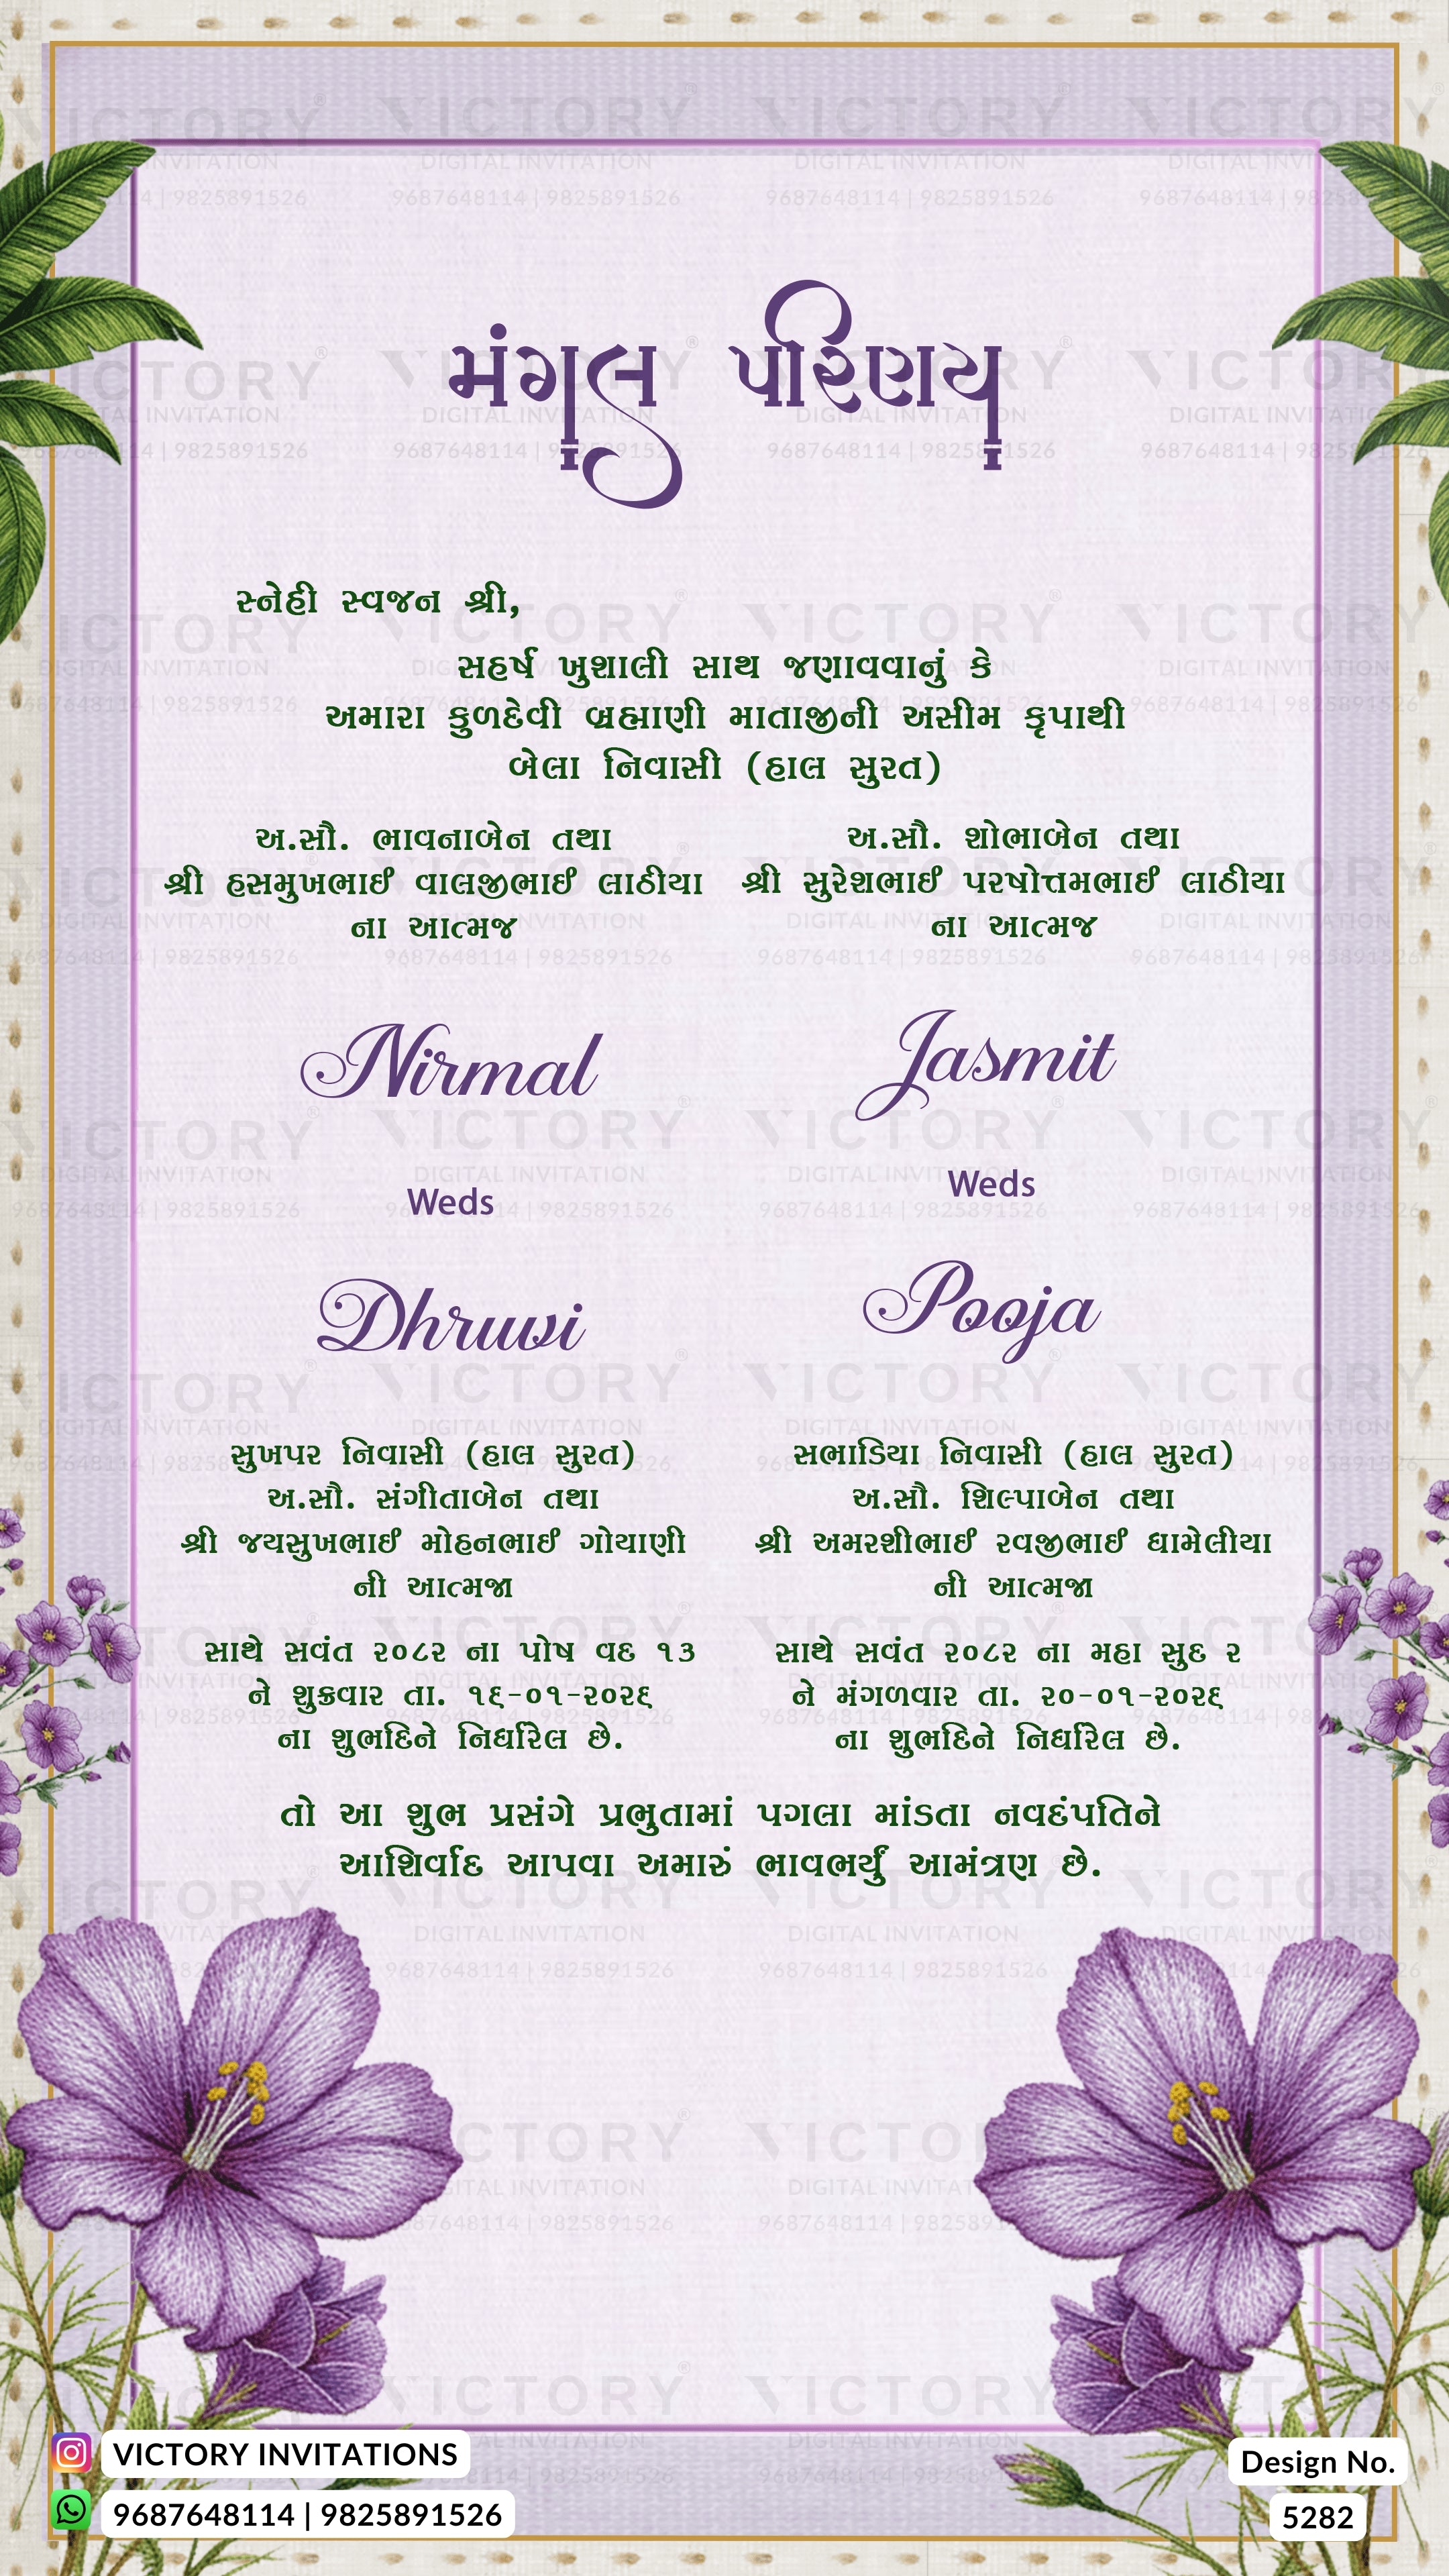 મંગલ પરિણય
સ્નેહી સ્વજન શ્રી,
સહર્ષ ખુશાલી સાથ જણાવવાનું કે
અમારા કુળદેવી બ્રહ્માણી માતાજીની અસીમ કૃપાથી
બેલા નિવાસી (હાલ સુરત)
અ.સૌ. ભાવનાબેન તથા
શ્રી હસમુખભાઈ વાલજીભાઈ લાઠીયા
ના આત્મજ
Nirmal
Weds
Dhruvi
સુખપર નિવાસી (હાલ સુરત)
અ.સૌ. સંગીતાબેન તથા
શ્રી જયસુખભાઈ મોહનભાઈ ગોયાણી
ની આત્મજા
સાથે સવંત ૨૦૮૨ ના પોષ વદ ૧૩
ને શુક્રવાર તા. ૧૬-૦૧-૨૦૨૬
ના શુભદિને નિર્ધારેલ છે.
અ.સૌ. શોભાબેન તથા
શ્રી સુરેશભાઈ પરષોત્તમભાઈ લાઠીયા
ના આત્મજ
Jasmit
Weds
Pooja
સભાડિયા નિવાસી (હાલ સુરત)
અ.સૌ. શિલ્પાબેન તથા
શ્રી અમરશીભાઈ રવજીભાઈ ધામેલીયા
ની આત્મજા
સાથે સવંત ૨૦૮૨ ના મહા સુદ ૨
ને મંગળવાર તા. ૨૦-૦૧-૨૦૨૬
ના શુભદિને નિર્ધારેલ છે.
તો આ શુભ પ્રસંગે પ્રભુતામાં પગલા માંડતા નવદંપતિને
આશિર્વાદ આપવા અમારું ભાવભર્યું આમંત્રણ છે.
VICTORY INVITATIONS
9687648114 | 9825891526
Design No.
5282
VICTORY
DIGITAL INVITATION
9687648114 | 9825891526